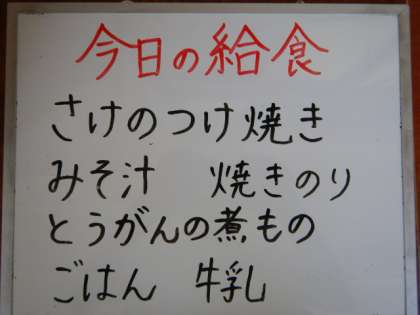 今日の給食
さけのつけ焼き
みそ汁　焼きのり
とうがんの煮もの
ごはん　牛乳